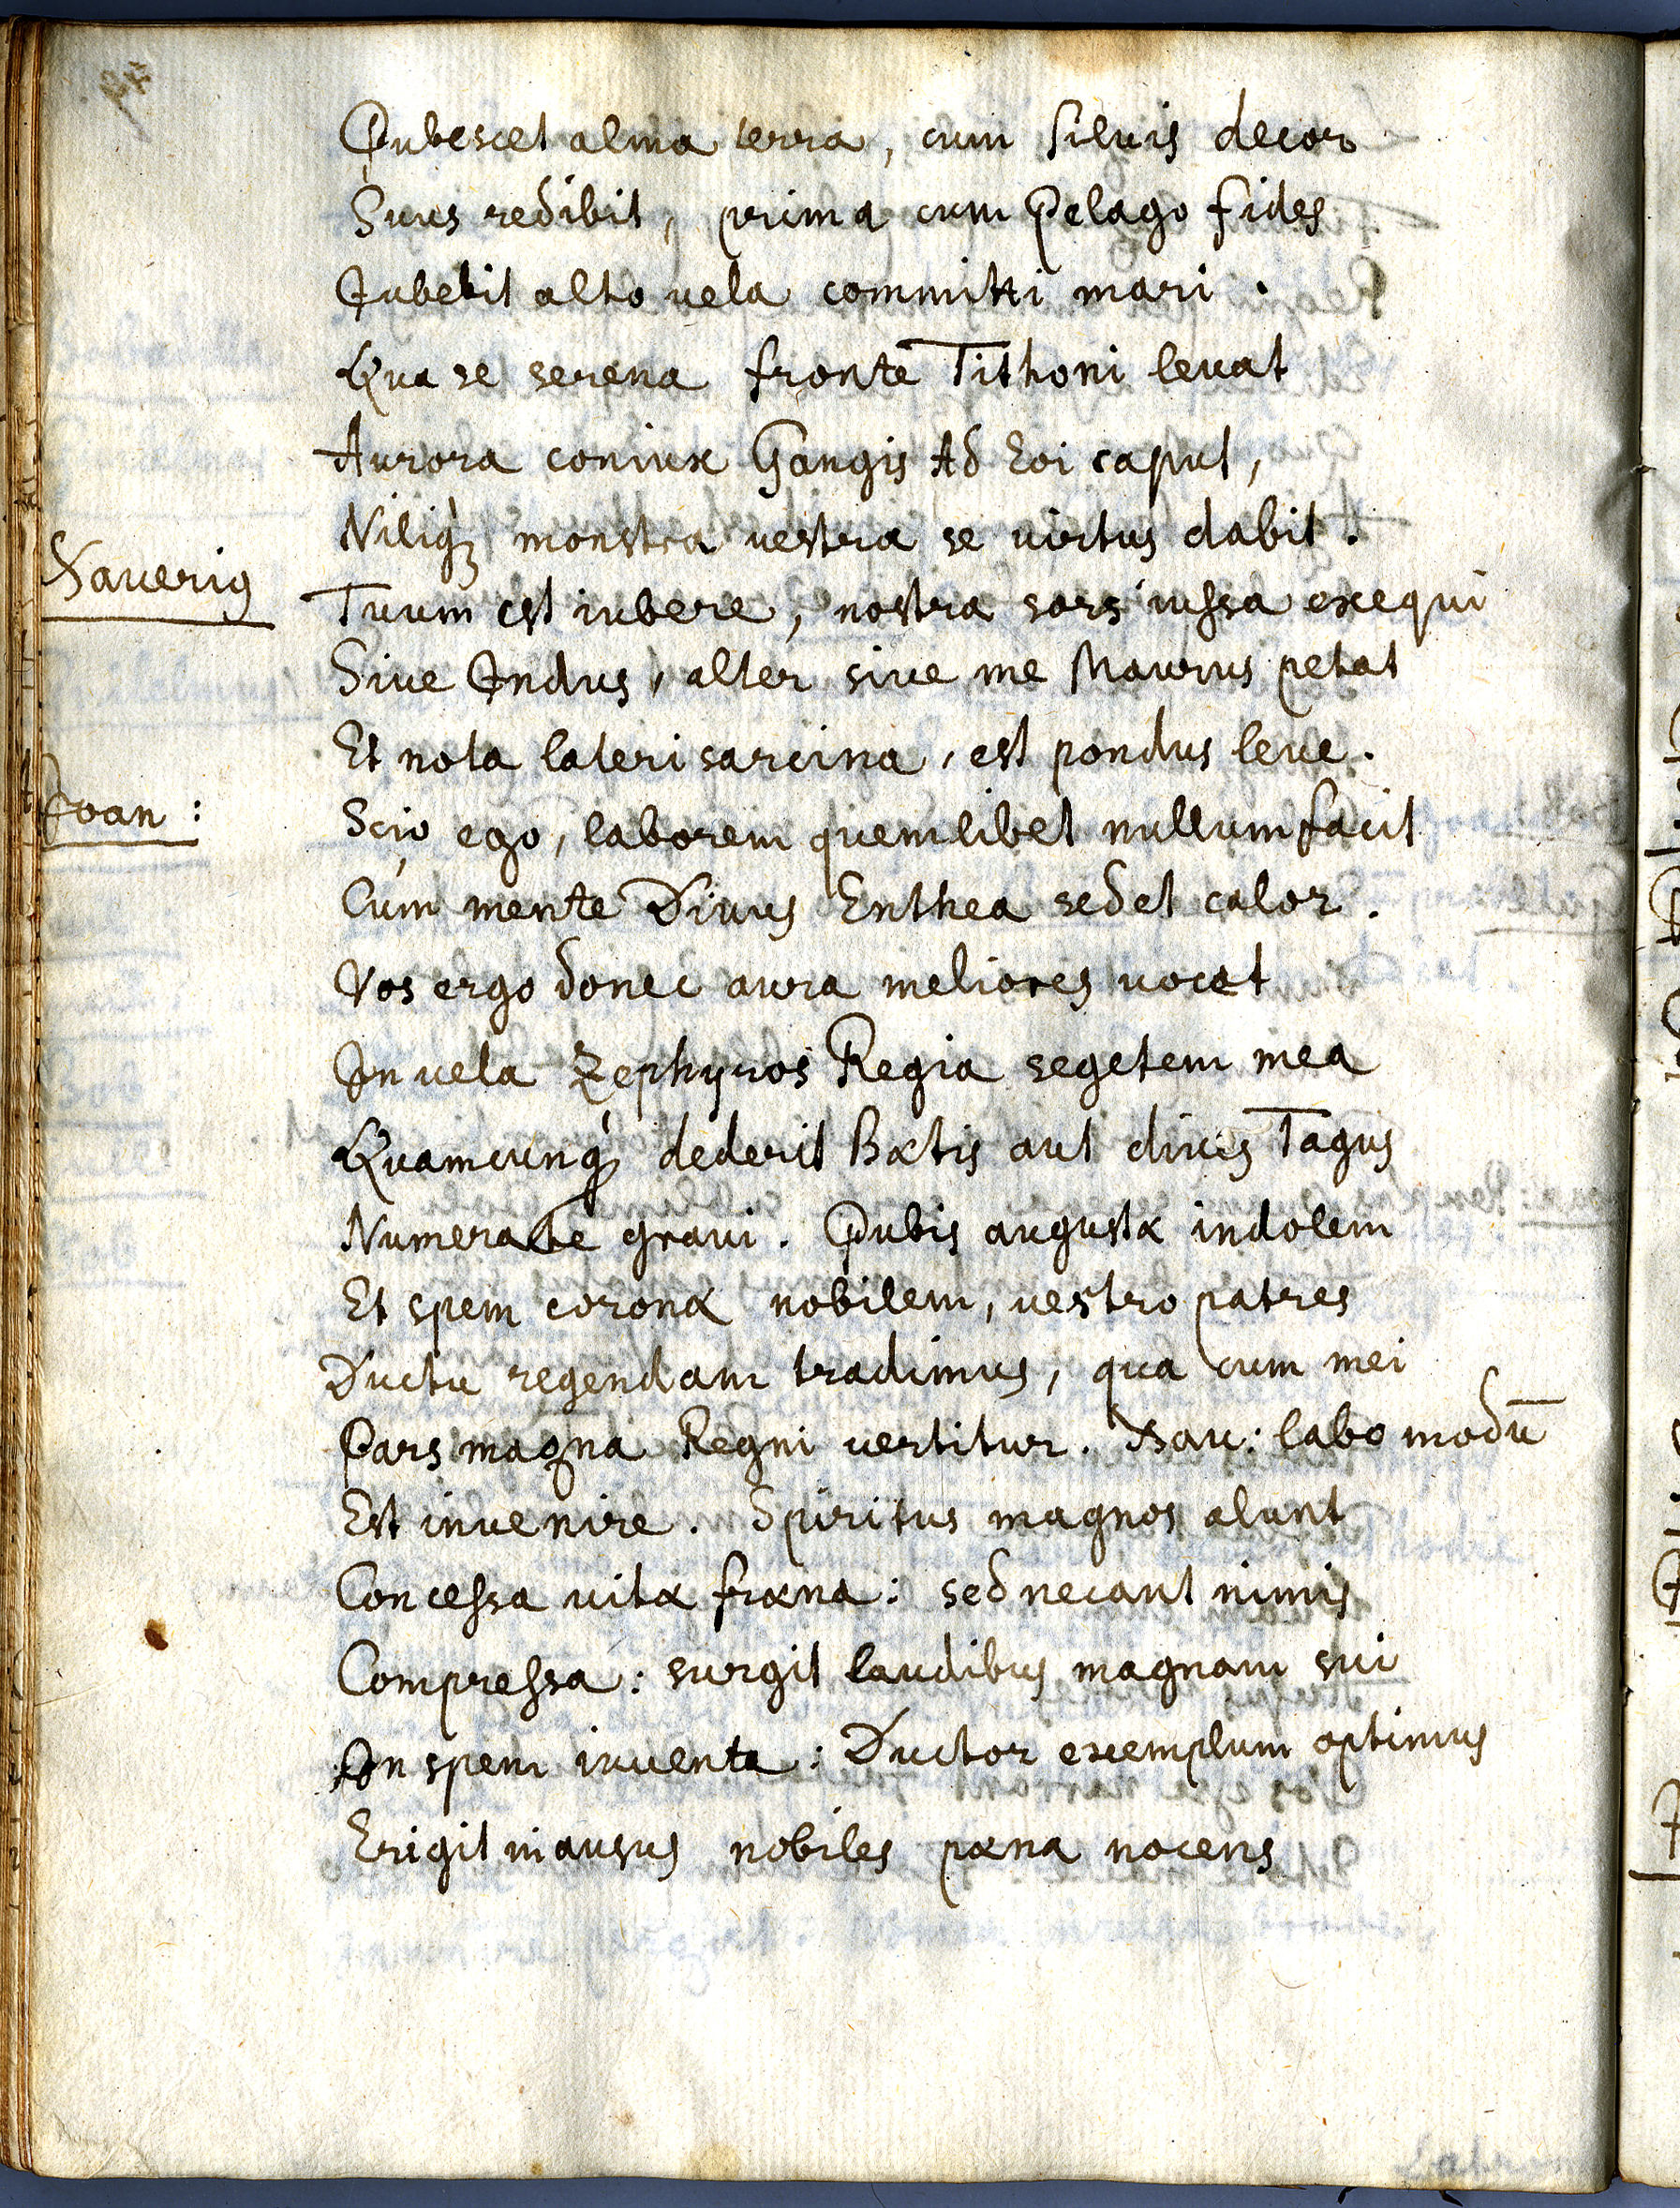 Pubescet alma terra, cum silvis decor
Suus redibit, prima cum Pelago fides
Iubebit alto vela committi mari.
Qua se serena fronte Tithoni levat
Aurora coniux Gangis Ad Eoi caput,
Niliq₃ monstra vestra se virtus dabit.
Xaveriꝰ Tuum est iubere, nostra sors iussa exequi
Sive Indus, alter sive me Maurus petat
Et nota lateri sarcina, est pondus leve.
Ioan: Scio ego, laborem quemlibet nullum facit
Cum mente Divus Enthea sedet calor.
Vos ergo donec aura meliores vocet
In vela Zephyros Regia segetem mea
Quamcunq₃ dederit Bætis aut dives Tagus
Numerate gravi. Pubis augustæ indolem
Et spem coronæ nobilem, vestro patres
Ductu regendam tradimus, qua cum mei
Pars magna Regni vertitur. Xav: labo modū
Est invenire. Spiritus magnos alunt
Concessa vitæ fræna: sed necant nimis
Compressa: surgit laudibus magnam sui
In spem iuventa: Ductor exemplum optimus
Erigit in ausus nobiles pæna nocens